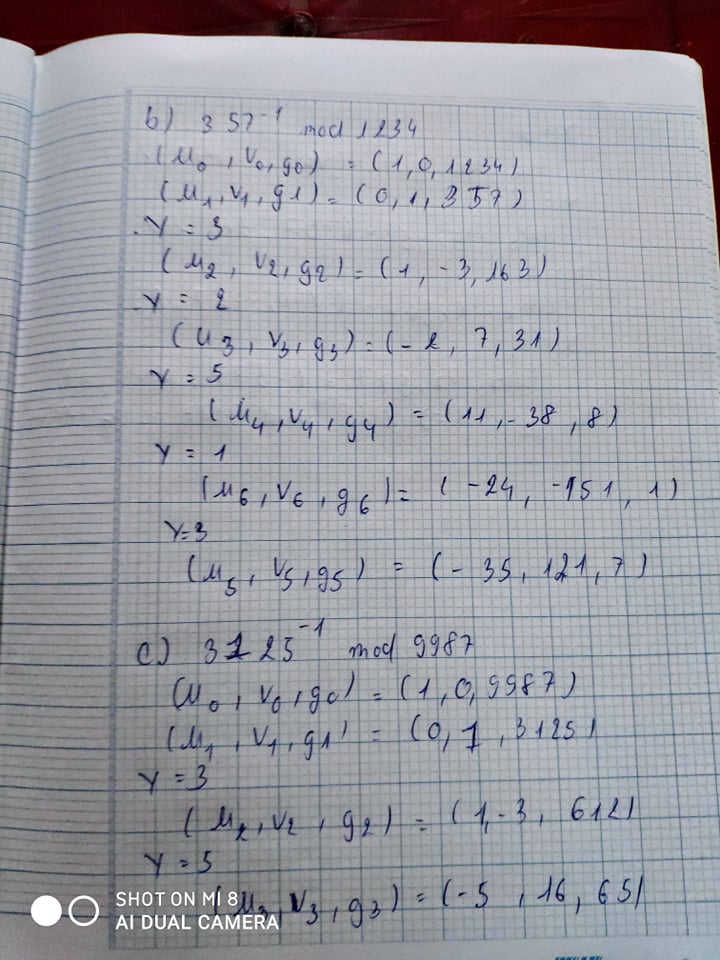 b) 357⁻¹ mod 1234
(u₀, v₀, g₀) = (1, 0, 1234)
(u₁, v₁, g1) = (0, 1, 357)
Y = 3
(u₂, v₂, g₂) = (1, -3, 163)
Y = 2
(u₃, v₃, g₃) = (-2, 7, 31)
Y = 5
(u₄, v₄, g₄) = (11, -38, 8)
Y = 1
(u₆, v₆, g₆) = (-24, -151, 1)
Y=3
(u₅, v₅, g₅) = (-35, 121, 7)
c) 3125⁻¹ mod 9987
(u₀, v₀, g₀) = (1, 0, 9987)
(u₁, v₁, g1) = (0, 1, 3125)
Y = 3
(u₂, v₂, g₂) = (1, -3, 612)
Y = 5
(u₃, v₃, g₃) = (-5, 16, 65)
SHOT ON MI 8
AI DUAL CAMERA